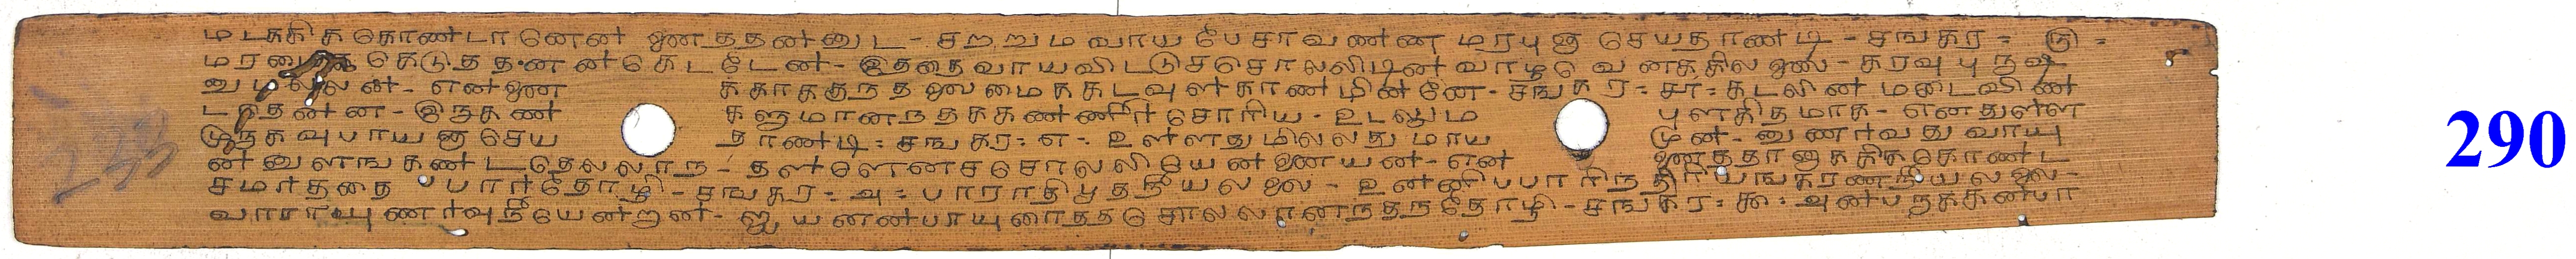 மடககிக கொண்டானென ணைததன்னுட - சறறும வாய பேசாவண்ண மரபுஞ செயதாண்டி - சங்கர = ௫ =
கெடுதத.னன்கெடடேன் - இததை வாயவிடடுச்சொலலிடின் வாழ்வெனக்கில்லை - கரவு புருஷ
னுமல்லன் - என்னை ககாககுநத லைமைககடவுள்காண் மினனே - சங்கர = ௬ = கடலின் மடைவிண்
டதென்ன - இருகண் களுமானநதககண்ணீர் சொரிய - உடலும புளகிதமாக - எனதுள்ள
முருகவுபாயஞ செய தாண்டி = சங்கர = ௭ - உள்ளதுமிலலதுமாய முன் - னுணர்வதுவாயு
ன்னுளங்கண்டதெலலாந - தள்ளெனச்சொலலியேன்ணையன் - என் னைததானாககிககொண்ட
சமர்ததை பபார்தோழி - சங்கர = ௮ = பாராதிபூதநீயலலை - உன்னிப்பாரிநதிரியங்கரணநீயலலை -
வாராயுணர்வுநீயென்றன் - ஐயனன்பாயுரைதத சொலலானநதநதோழி - சங்கர = ௯ = அன்பருக்கன்பா
233
290